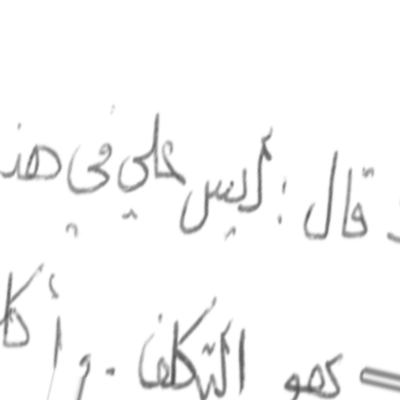 قال : ليس علي في هذ
كهو التكلف . و أ